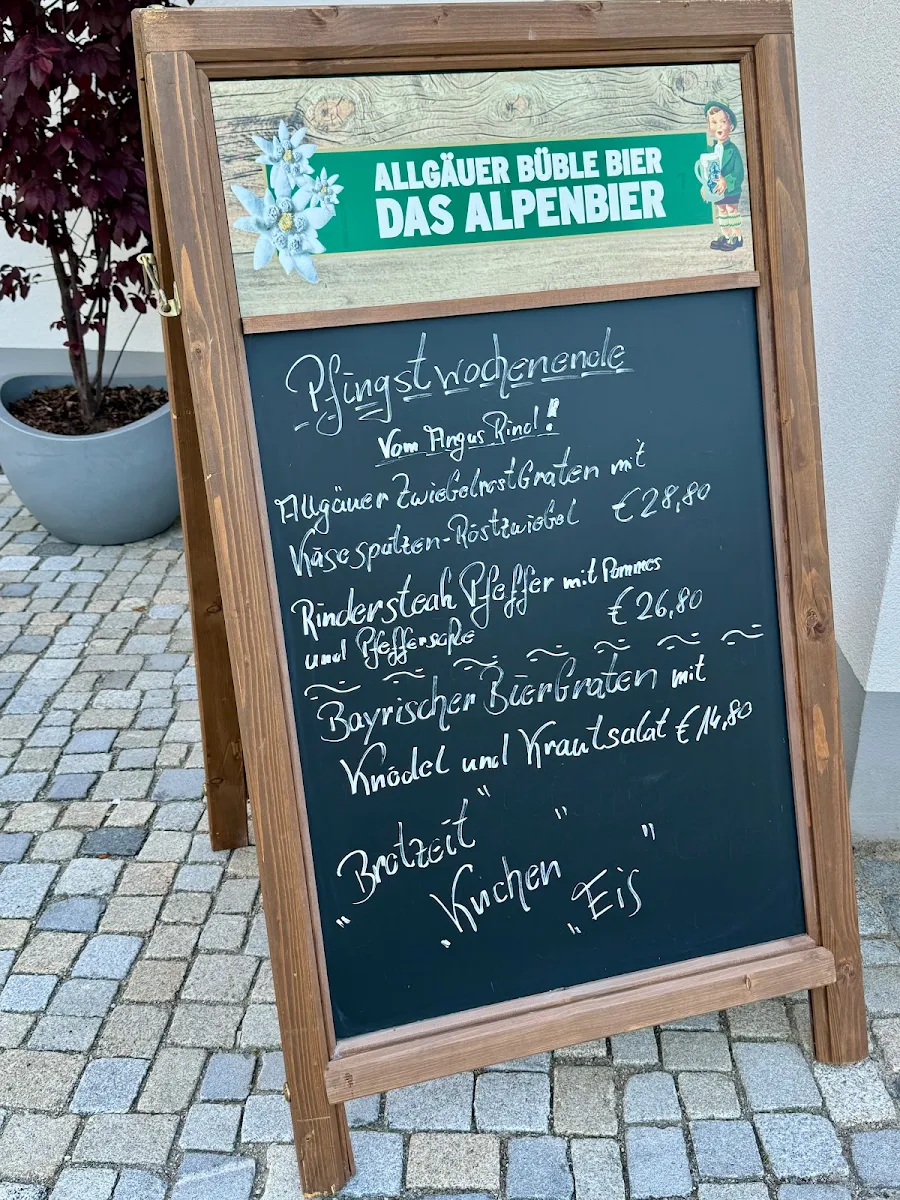 ALLGÄUER BÜBLE BIER
DAS ALPENBIER
Pfingstwochenende
Vom Angus Rind!
Allgäuer Zwiebelrostbraten mit
Käsespatzen-Röstzwiebel €28,80
Rindersteak Pfeffer mit Pommes
und Pfeffersoße €26,80
Bayrischer Bierbraten mit
Knödel und Krautsalat €14,80
"Brotzeit"
"Kuchen"
"Eis"